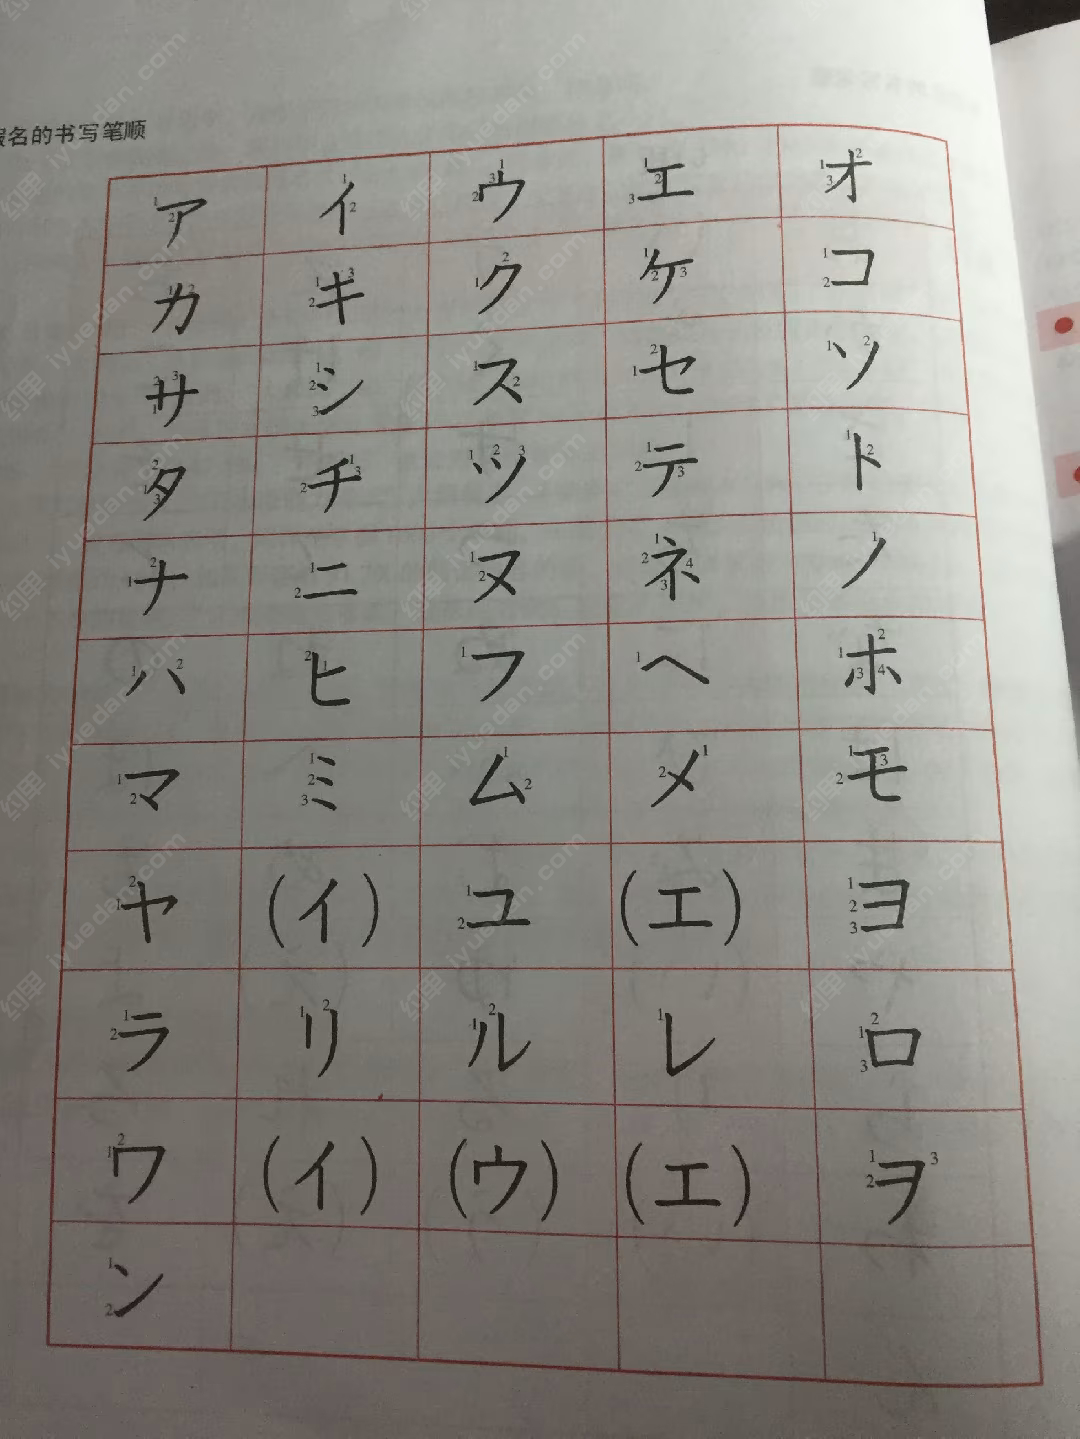 假名的书写笔顺
ア イ ウ エ オ
カ キ ク ケ コ
サ シ ス セ ソ
タ チ ツ テ ト
ナ ニ ヌ ネ ノ
ハ ヒ フ ヘ ホ
マ ミ ム メ モ
ヤ (イ) ユ (エ) ヨ
ラ リ ル レ ロ
ワ (イ) (ウ) (エ) ヲ
ン